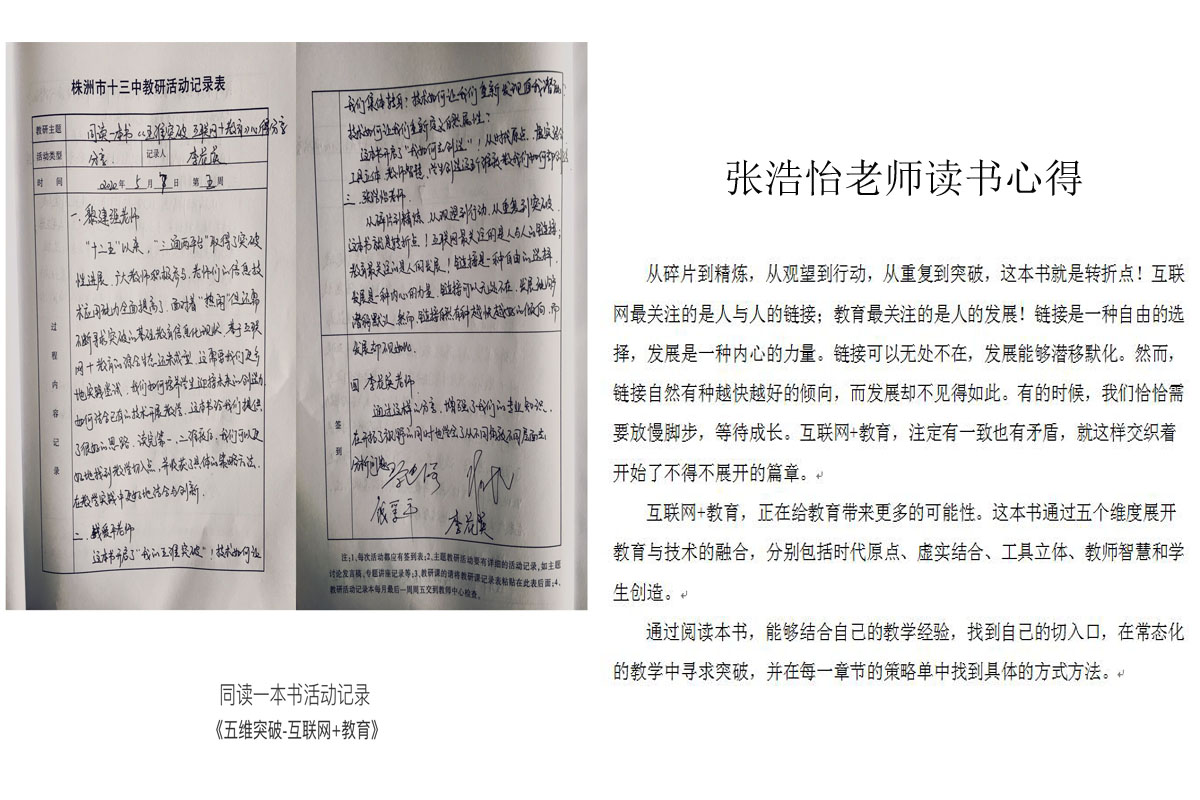 株洲市十三中教研活动记录表
教研主题 同读一本书《五维突破 互联网+教育》心得分享
活动类型 分享 记录人
时 间 2020年 5月 8日 第 五 周
过程内容记录
一、黎建强老师
“十二五”以来，“三通两平台”取得了突破
性进展，广大教师积极参与，老师们的信息技
术应用能力全面提高了，面对着“热闹”但还需
不断寻求突破的基础教育信息化现状，基于互联
网+教育的融合生态还未成型，这需要我们更多
地实践尝试，我们如何培养学生迎接未来的创造力
如何结合已有的技术开展教学，这本书给我们提供
了很好的思路，读完第一、二维度后，我们可以更
好地找到教学切入点，并收获了具体的策略方法，
在教学实践中更好地结合与创新。
二、钱爱平老师
这本书开启了“我的五维突破”！技术如何让
我们集体转身？技术如何让我们重新发现自我潜能？
技术如何让我们重新定义自然属性？
这本书开启了“我如何去创造”！从时代原点、虚实结合
工具立体、教师智慧、学生创造这五个维度教我们如何
三、张浩怡老师
从碎片到精炼，从观望到行动，从重复到突破，
这本书就是转折点！互联网最关注的是人与人的链接；
教育最关注的是人的发展！链接是一种自由的选择，
发展是一种内心的力量，链接可以无处不在，发展能够
潜移默化，然而，链接自然有种越快越好的倾向，而
发展却不见得如此。
四、李花英老师
通过这样的分享，增强了我们的专业知识，
在开拓了视野的同时也学会了从不同角度不同层面去
分析问题。
签到
李花英
注：1、每次活动都应有签到表；2、主题教研活动要有详细的活动记录，如主
讨论发言稿、专题讲座记录等；3、教研课的请将教研课记录表粘贴在此表后面；4、
教研活动记录本每月最后一周周五交到教师中心检查。
同读一本书活动记录
《五维突破-互联网+教育》
张浩怡老师读书心得
从碎片到精炼，从观望到行动，从重复到突破，这本书就是转折点！互联
网最关注的是人与人的链接；教育最关注的是人的发展！链接是一种自由的选
择，发展是一种内心的力量。链接可以无处不在，发展能够潜移默化。然而，
链接自然有种越快越好的倾向，而发展却不见得如此。有的时候，我们恰恰需
要放慢脚步，等待成长。互联网+教育，注定有一致也有矛盾，就这样交织着
开始了不得不展开的篇章。
互联网+教育，正在给教育带来更多的可能性。这本书通过五个维度展开
教育与技术的融合，分别包括时代原点、虚实结合、工具立体、教师智慧和学
生创造。
通过阅读本书，能够结合自己的教学经验，找到自己的切入口，在常态化
的教学中寻求突破，并在每一章节的策略单中找到具体的方式方法。